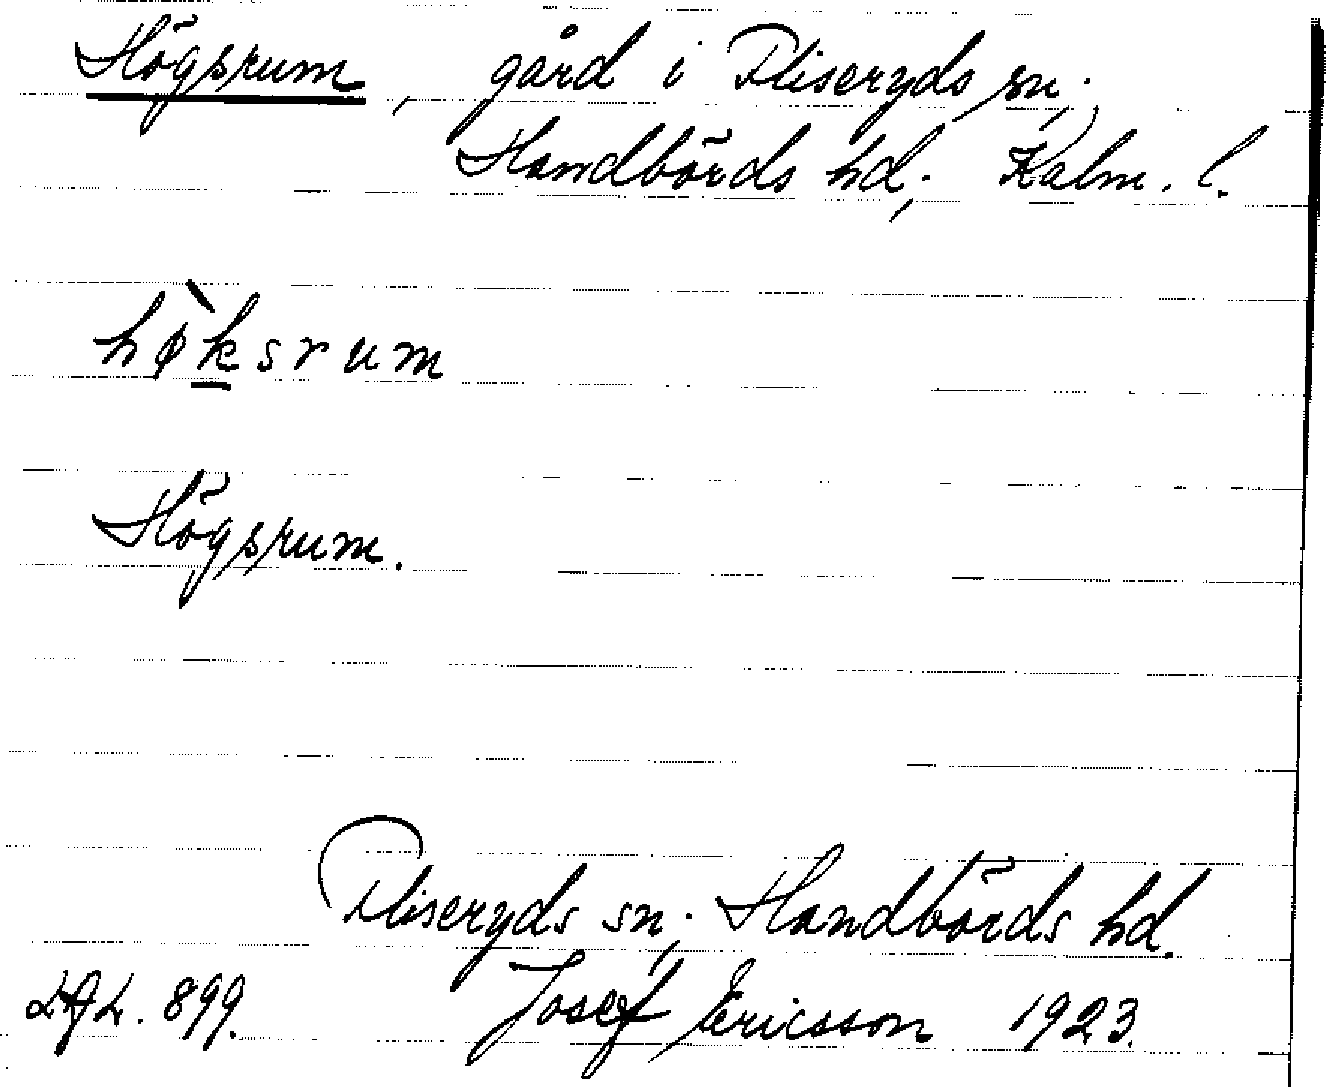 Högsrum, gård i Fliseryds sn;
Handbörds hd; Kalm. l.
hø̀ksrum
Högsrum.
Fliseryds sn; Handbörds hd.
899. Josef Ericsson 1923.